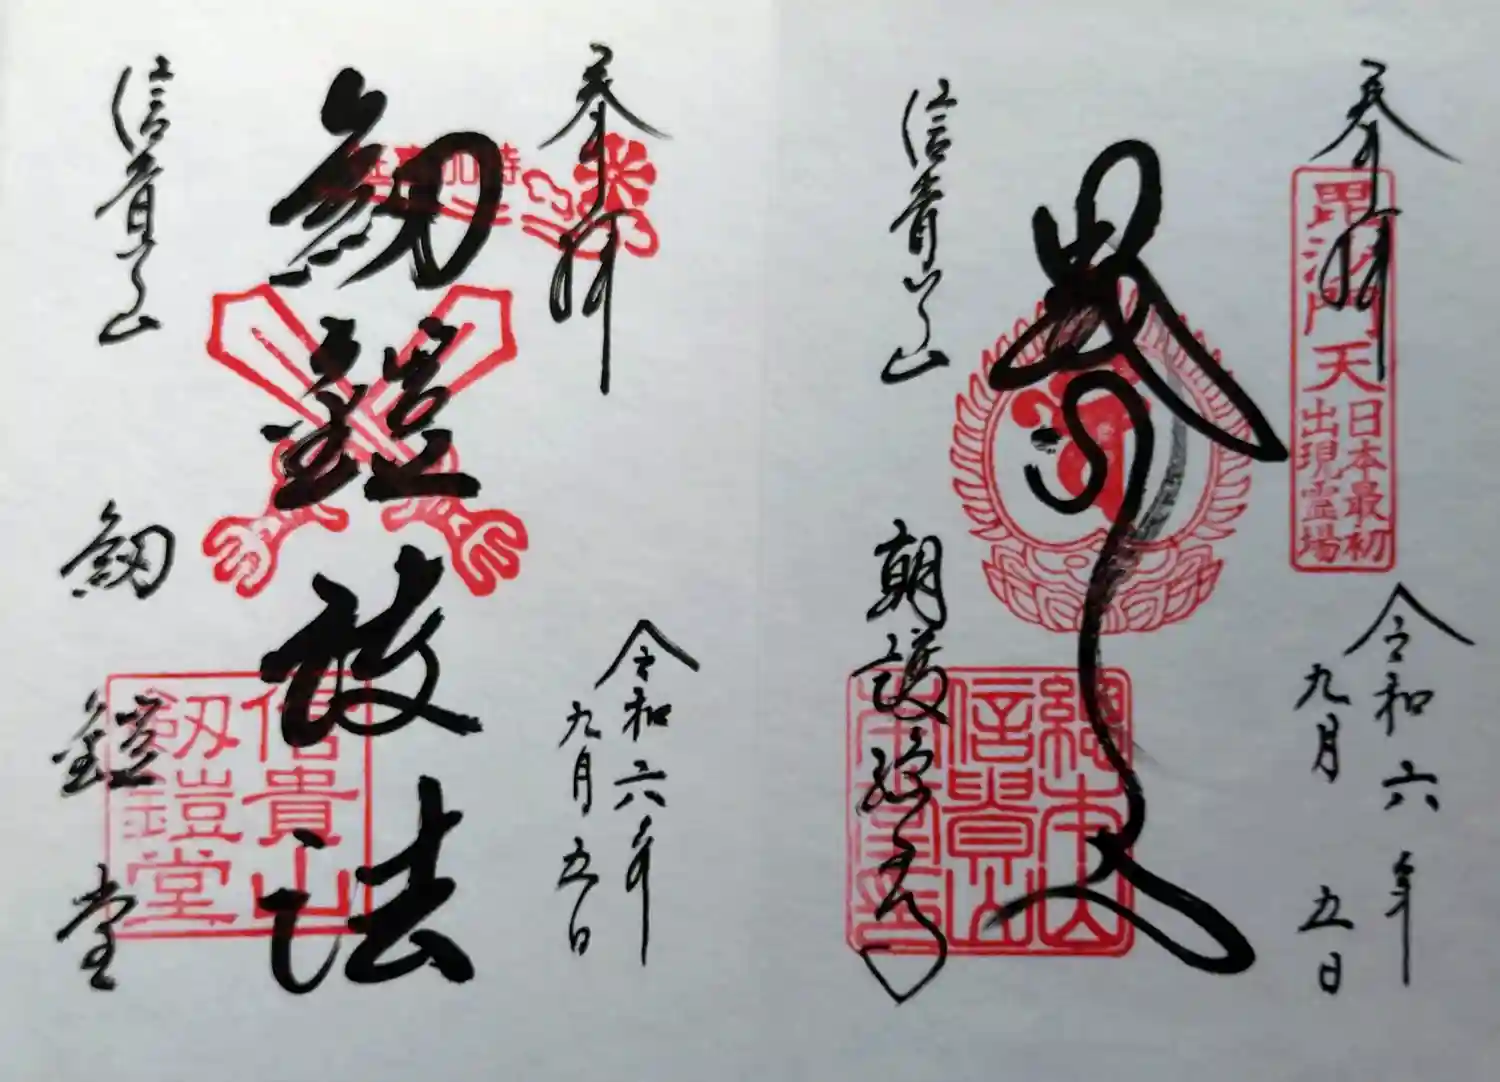 奉拝
毘沙門天
日本最初
出現霊場
令和六年
九月五日
信貴山
朝護孫子
總本山
信貴山
奉拝
令和六年
九月五日
剱鎧
法
信貴山
剱鎧堂
信貴山
剱鎧堂